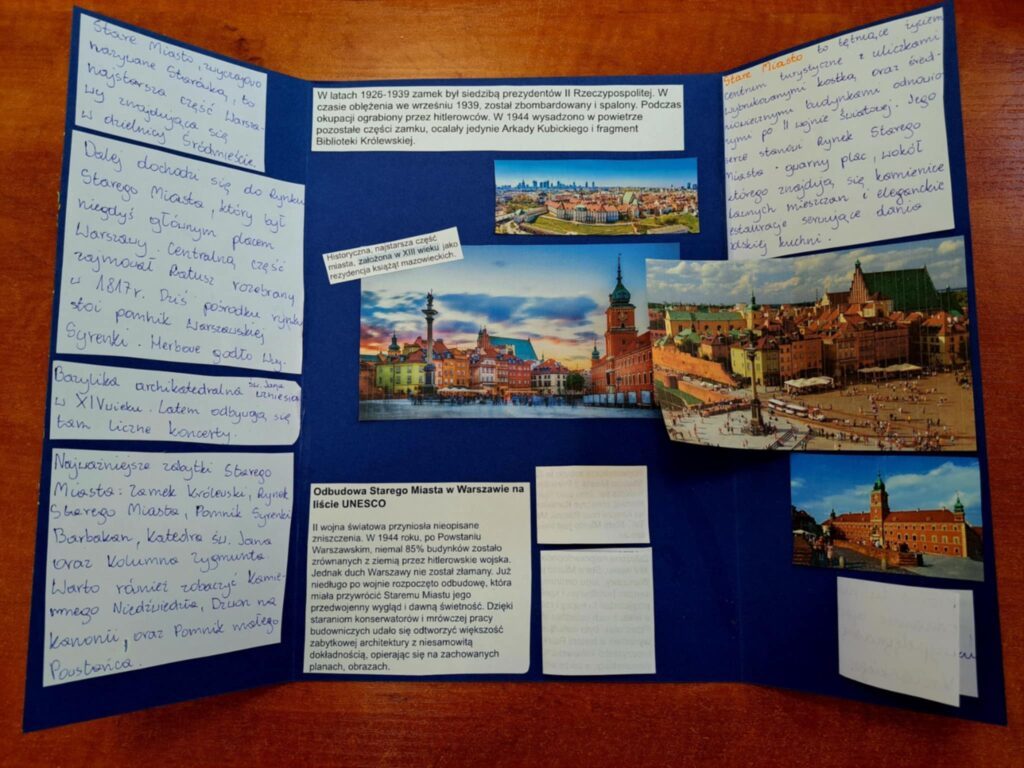 Stare Miasto, zwyczajowo
nazywane Starówką, to
najstarsza część Warsza-
wy znajdująca się
w dzielnicy Śródmieście.
Dalej dochodzi się do Rynku
Starego Miasta, który był
niegdyś głównym placem
Warszawy. Centralną część
zajmował Ratusz rozebrany
w 1817r. Dziś pośrodku rynku
stoi pomnik Warszawskiej
Syrenki. Herbowe godło Wy.
Bazylika archikatedralna św. Jana
wzniesiona
w XIV wieku. Latem odbywają się
tam liczne koncerty.
Najważniejsze zabytki Starego
Miasta: Zamek Królewski, Rynek
Starego Miasta, Pomnik Syrenki
Barbakan, Katedra św. Jana
oraz Kolumna Zygmunta.
Warto również zobaczyć Kamie-
nnego Niedźwiedzia, Dzwon na
Kanonii, oraz Pomnik małego
Powstańca.
W latach 1926-1939 zamek był siedzibą prezydentów II Rzeczypospolitej. W
czasie oblężenia we wrześniu 1939, został zbombardowany i spalony. Podczas
okupacji ograbiony przez hitlerowców. W 1944 wysadzono w powietrze
pozostałe części zamku, ocalały jedynie Arkady Kubickiego i fragment
Biblioteki Królewskiej.
Historyczna, najstarsza część
miasta, założona w XIII wieku jako
rezydencja książąt mazowieckich.
Odbudowa Starego Miasta w Warszawie na
liście UNESCO
II wojna światowa przyniosła nieopisane
zniszczenia. W 1944 roku, po Powstaniu
Warszawskim, niemal 85% budynków zostało
zrównanych z ziemią przez hitlerowskie wojska.
Jednak duch Warszawy nie został złamany. Już
niedługo po wojnie rozpoczęto odbudowę, która
miała przywrócić Staremu Miastu jego
przedwojenny wygląd i dawną świetność. Dzięki
staraniom konserwatorów i mrówczej pracy
budowniczych udało się odtworzyć większość
zabytkowej architektury z niesamowitą
dokładnością, opierając się na zachowanych
planach, obrazach.
Stare Miasto to tętniące życiem
centrum turystyczne z uliczkami
wybrukowanymi kostką oraz śred-
niowiecznymi budynkami odnowio-
nymi po II wojnie światowej. Jego
serce stanowi Rynek Starego
Miasta - gwarny plac, wokół
którego znajdują się kamienice
mieszczan i eleganckie
restauracje serwujące dania
polskiej kuchni.